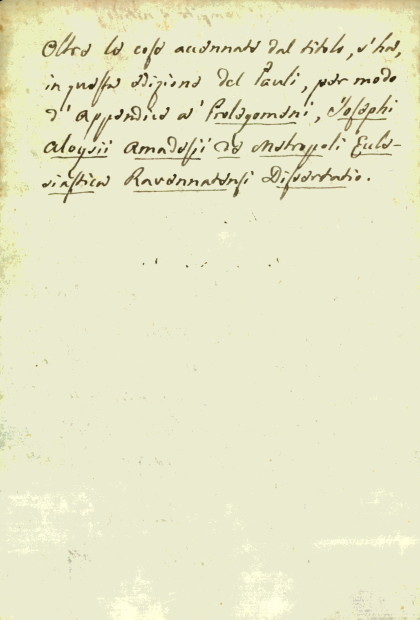 Oltre le cose accennate dal titolo, s'ha,
in questa edizione del Pauli, per modo
d'Appendice a' Prolegomeni, Josephi
Aloysii Amadesii de Metropoli Eccle-
siastica Ravennatensi Dissertatio.